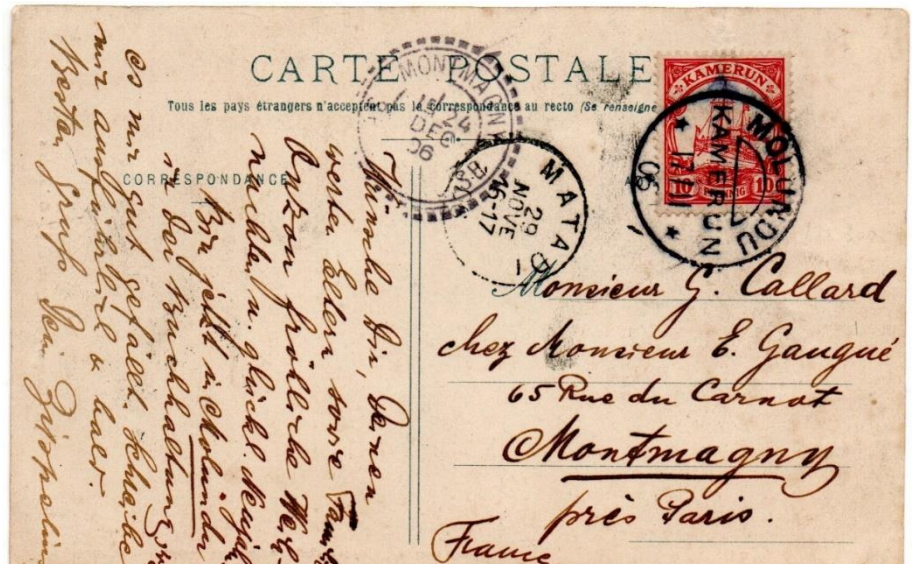 CARTE POSTALE
Tous les pays étrangers n'acceptent pas la correspondance au recto (Se renseigne
CORRESPONDANCE
KAMERUN
10 10
MOLUNDU
KAMERUN
06
MATADI
29
NOVE
5-17
MONTMAGNY
24
DEC
06
Monsieur G. Callard
chez Monsieur E. Gaugué
65 Rue du Carnot
Montmagny
près Paris.
France
Wünsche Dir, Deinen
werten Eltern sowie
Onkeln fröhliche Weih
nachten u. glückl. Neujah
Bin jetzt in Molundu
in der Buchhaltung
es mir gut gefällt. Schreibe
mir ausführlich & bald.
Besten Gruß Dein